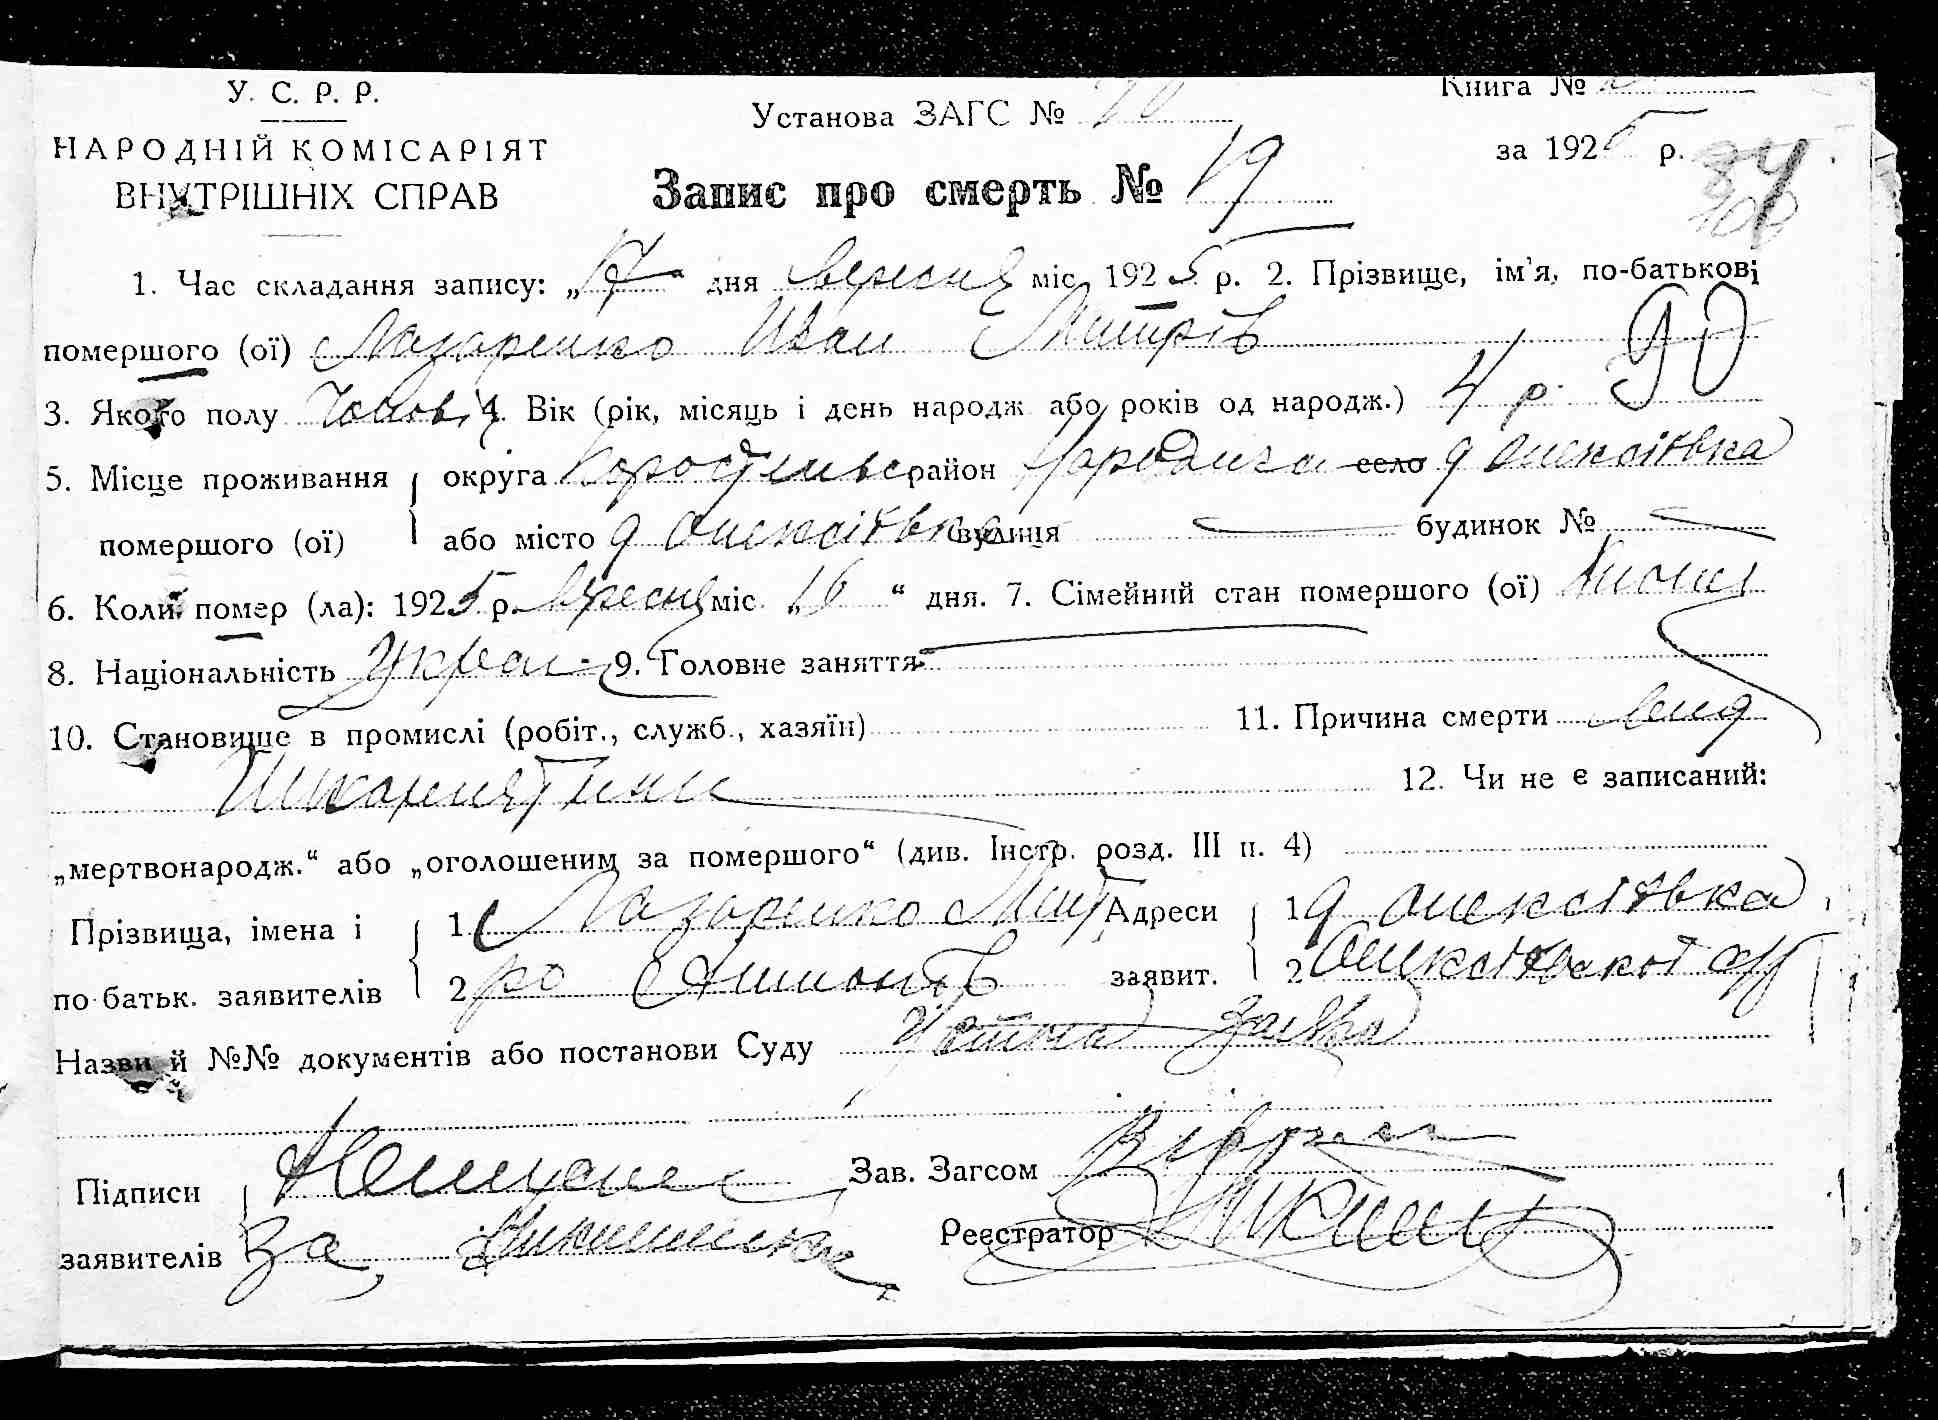 У. С. Р. Р.
НАРОДНІЙ КОМІСАРІЯТ
ВНУТРІШНІХ СПРАВ
Установа ЗАГС №
Книга №
за 1925 р.
84
Запис про смерть № 19
1. Час складання запису: „17“ дня вересня міс. 1925 р. 2. Прізвище, ім'я, по-батькові
помершого (ої) Лазаренко Иван Митрів
90
3. Якого полу Чоловіч 4. Вік (рік, місяць і день народж або років од народж.) 4 р.
5. Місце проживання округа Коростеньс район Народича село д Олексіївка
помершого (ої) або місто д Олексіївка вулиця будинок №
6. Коли помер (ла): 1925 р. вересня міс. „16“ дня. 7. Сімейний стан помершого (ої)
8. Національність Украї- 9. Головне заняття
10. Становище в промислі (робіт., служб., хазяїн) 11. Причина смерти вид
Шкарлятини 12. Чи не є записаний:
„мертвонародж.“ або „оголошеним за помершого“ (див. Інстр. розд. III п. 4)
Прізвища, імена і 1 Лазаренко Мит Адреси 1 д Олексіївка
по-батьк. заявителів 2 ро заявит. 2 Олексіївської с/р
Назви й №№ документів або постанови Суду Устна заява
Підписи Неписьмен Зав. Загсом
заявителів За Реєстратор